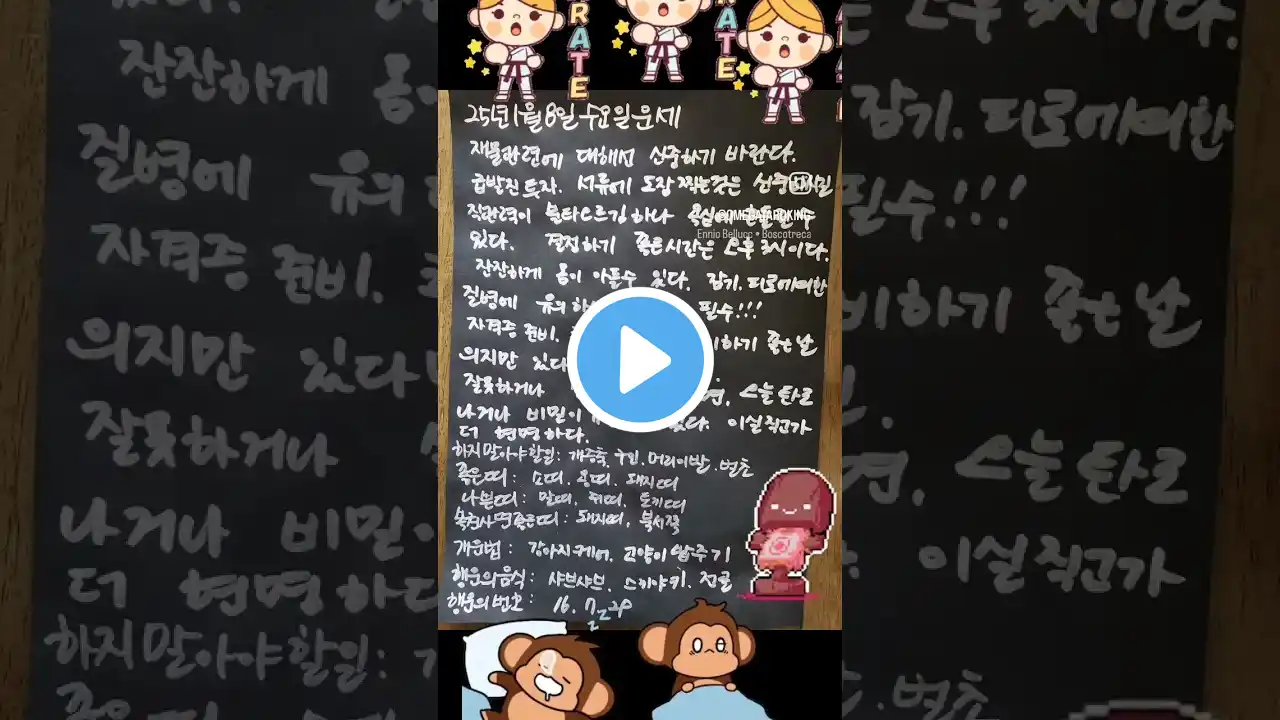 KARATE
25년1월8일 수요일 운세
재물관련에 대해선 신중하기 바란다.
급발진 투자. 서류에 도장 찍는것은 신중
직관력이 불타오르긴 하나 욕심에 흔들릴수
@OMEGATAROKING
Ennio Bellucc • Boscotreca
있다. 결정하기 좋은시간은 오후 3시이다.
잔잔하게 몸이 아플수 있다. 감기. 피로에의한
질병에 유의 필수!!!
자격증 준비. 비하기 좋은날
의지만 있다
잘못하거나 스늘 탄로
나거나 비밀이 있다. 이실직고가
더 현명하다.
하지말아야할일: 개축, 구인, 머리이발. 벌초
좋은띠: 소띠. 용띠. 돼지띠
나쁜띠: 말띠. 쥐띠. 토끼띠
돼지띠, 북서쪽
개운법: 강아지케어. 고양이 밥주기
행운의음식: 샤브샤브. 스키야키. 전골
행운의 번호: 16.